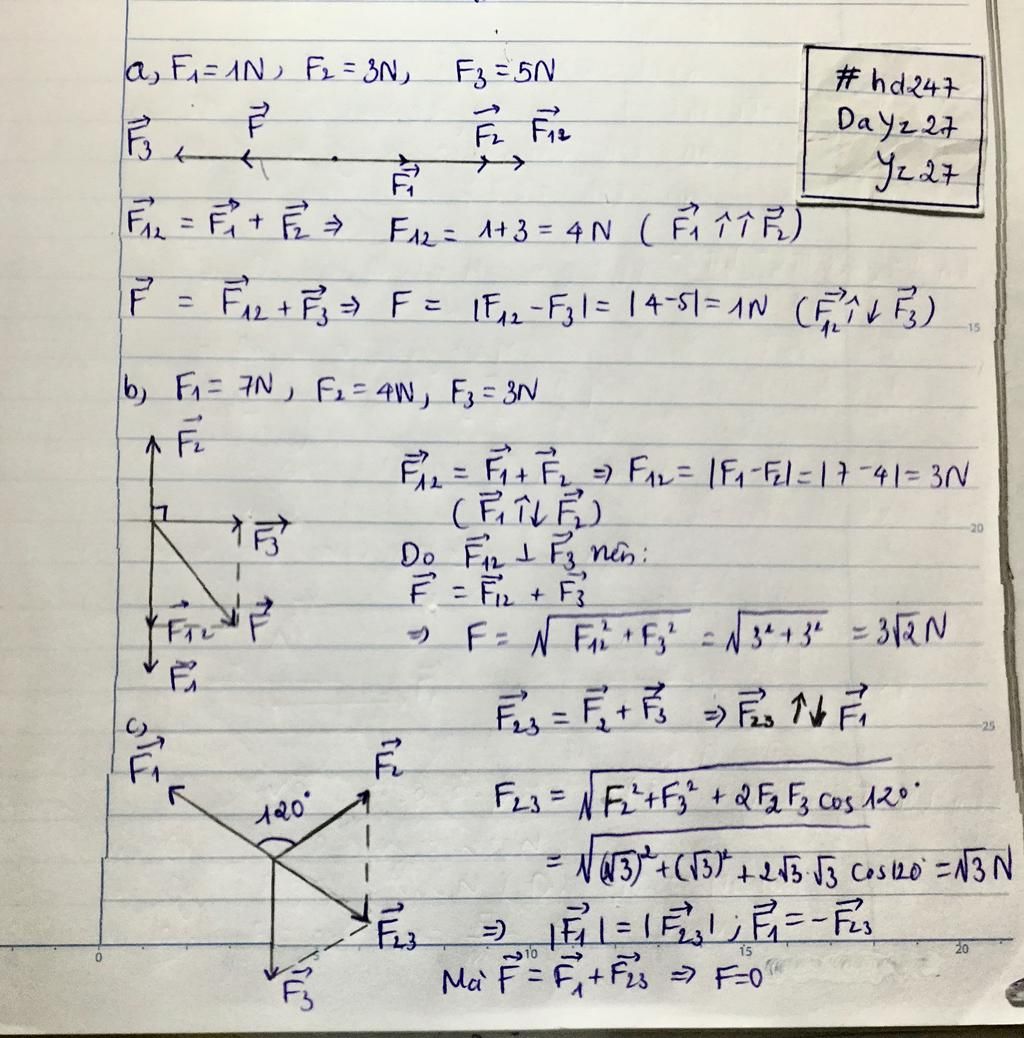 a, F₁ = 1N, F₂ = 3N, F₃ = 5N
# hd247
Dayz27
Yz27
F⃗₃ F⃗ F⃗₁ F⃗₂ F⃗₁₂
F⃗₁₂ = F⃗₁ + F⃗₂ ⇒ F₁₂ = 1+3 = 4N ( F⃗₁ ↑↑ F⃗₂)
F⃗ = F⃗₁₂ + F⃗₃ ⇒ F = |F₁₂ - F₃| = |4-5| = 1N (F⃗₁₂ ↑↓ F⃗₃)
15
b, F₁ = 7N, F₂ = 4N, F₃ = 3N
F⃗₂
F⃗₁₂ = F⃗₁ + F⃗₂ ⇒ F₁₂ = |F₁ - F₂| = |7 - 4| = 3N
( F⃗₁ ↑↓ F⃗₂)
20
F⃗₃
Do F⃗₁₂ ⊥ F⃗₃ nên:
F⃗ = F⃗₁₂ + F⃗₃
F⃗₁₂ F⃗
⇒ F = √(F₁₂² + F₃²) = √(3² + 3²) = 3√2 N
F⃗₁
F⃗₂₃ = F⃗₂ + F⃗₃ ⇒ F⃗₂₃ ↑↓ F⃗₁
25
c,
F⃗₁ F⃗₂
120°
F₂₃ = √(F₂² + F₃² + 2F₂F₃ cos 120°
= √((√3)² + (√3)² + 2√3.√3 cos120° = √3 N
F⃗₂₃
⇒ |F⃗₁| = |F⃗₂₃| ; F⃗₁ = -F⃗₂₃
0 5 10 15 20
F⃗₃
Mà F⃗ = F⃗₁ + F⃗₂₃ ⇒ F=0